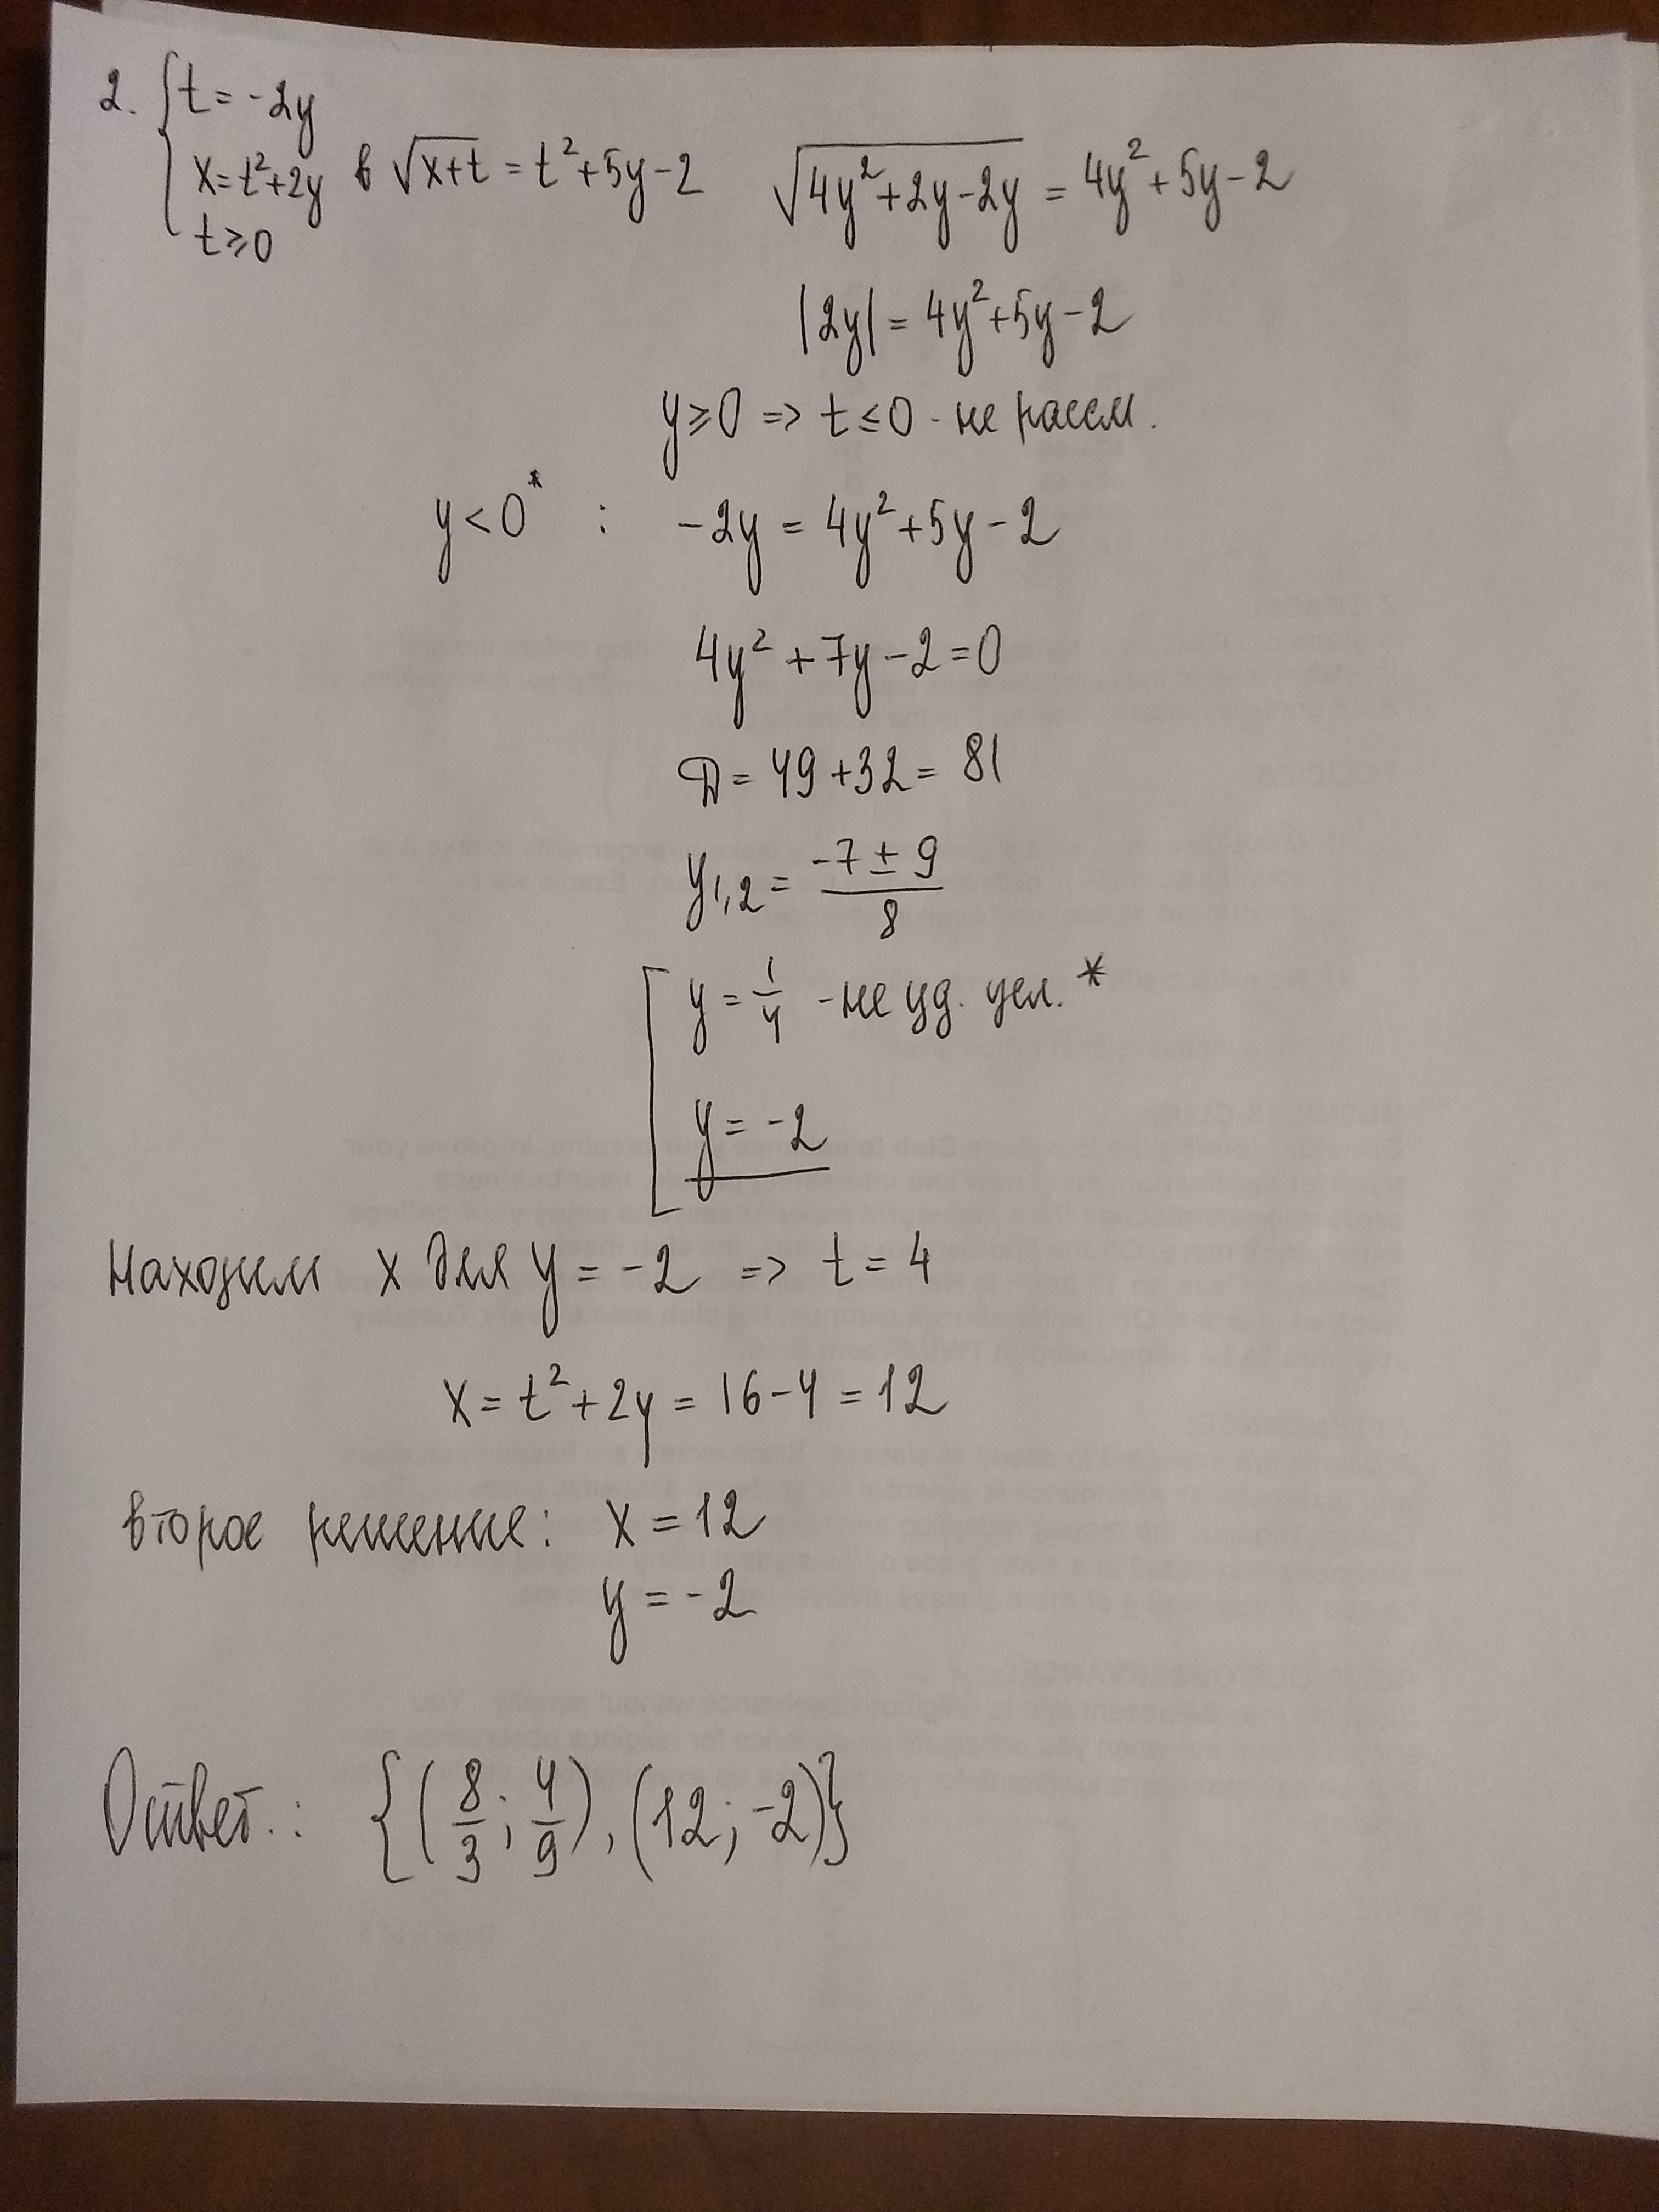 2. { t = -2y
x = t²+2y в √(x+t) = t²+5y-2 √(4y²+2y-2y) = 4y²+5y-2
t ≥ 0
|2y| = 4y²+5y-2
y ≥ 0 => t ≤ 0 - не рассм.
y < 0* : -2y = 4y²+5y-2
4y²+7y-2=0
D = 49+32 = 81
y1,2 = (-7 ± 9)/8
[ y = 1/4 - не уд. усл. *
y = -2
Находим x для y = -2 => t = 4
x = t²+2y = 16-4 = 12
второе решение: x = 12
y = -2
Ответ.: {(8/3; 4/9), (12; -2)}